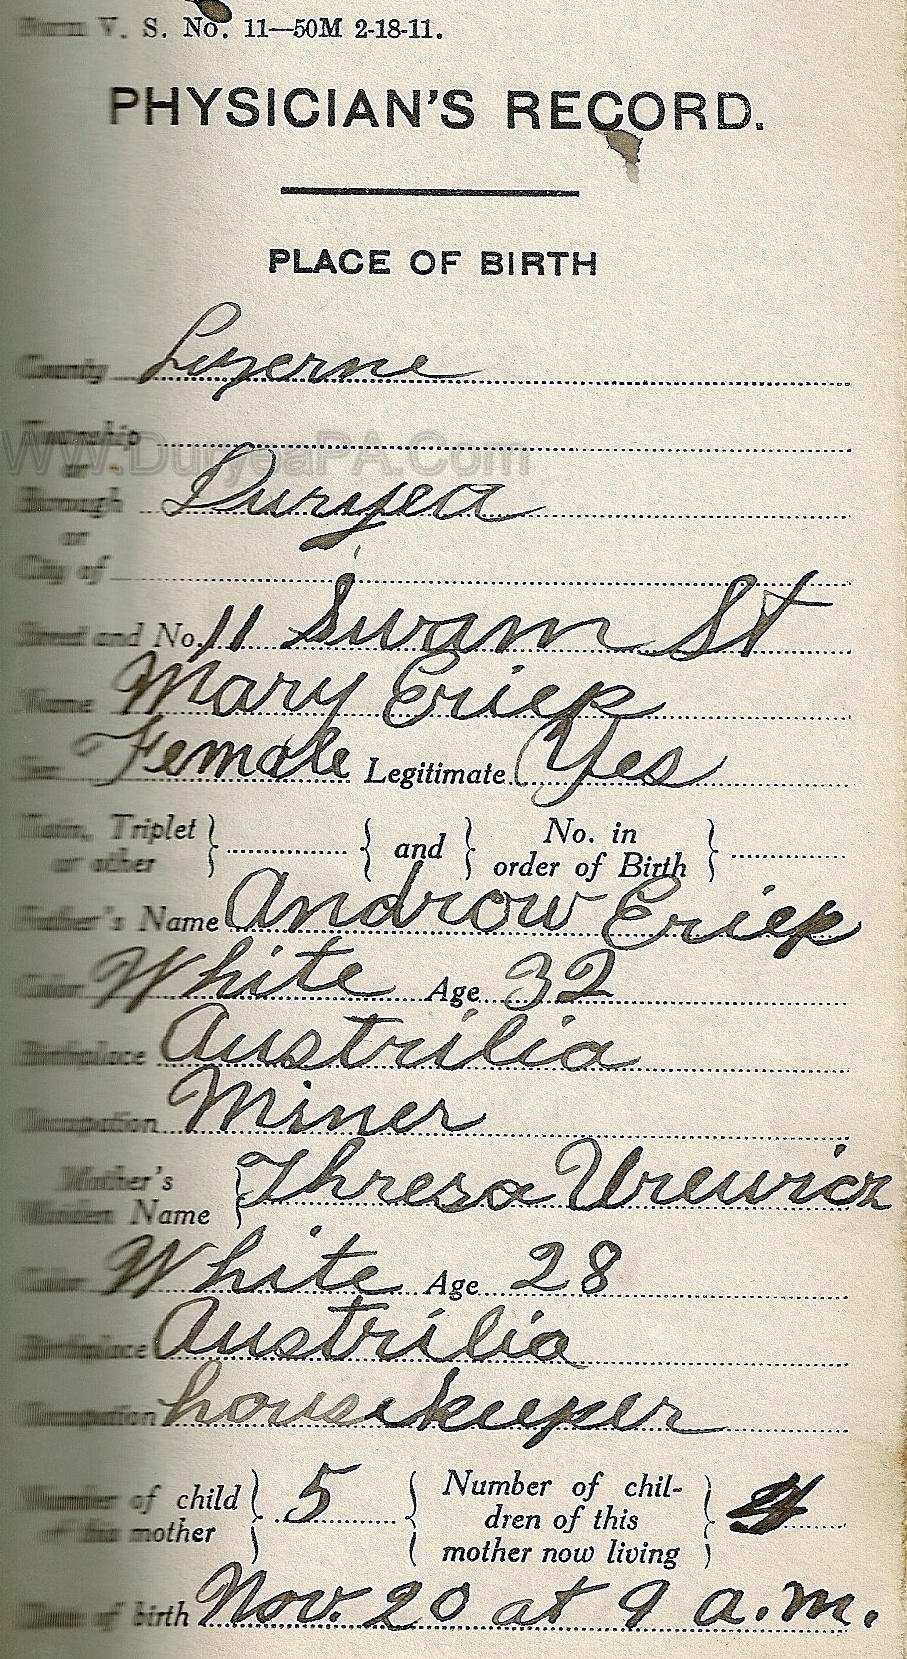 Form V. S. No. 11—50M 2-18-11.
PHYSICIAN'S RECORD.
PLACE OF BIRTH
County Luzerne
Township
WWW.DuryeaPA.Com
or
Borough Duryea
or
City of
Street and No. 11 Swam St
Name Mary Eriek
Sex Female Legitimate Yes
Twin, Triplet or other } { and } No. in order of Birth }
Father's Name Androw Eriek
Color White Age 32
Birthplace Austrilia
Occupation Miner
Mother's Maiden Name { Thresa Urewicz
Color White Age 28
Birthplace Austrilia
Occupation housikeeper
Number of child of this mother } 5 { Number of children of this mother now living } 4
Date of birth Nov. 20 at 9 a.m.